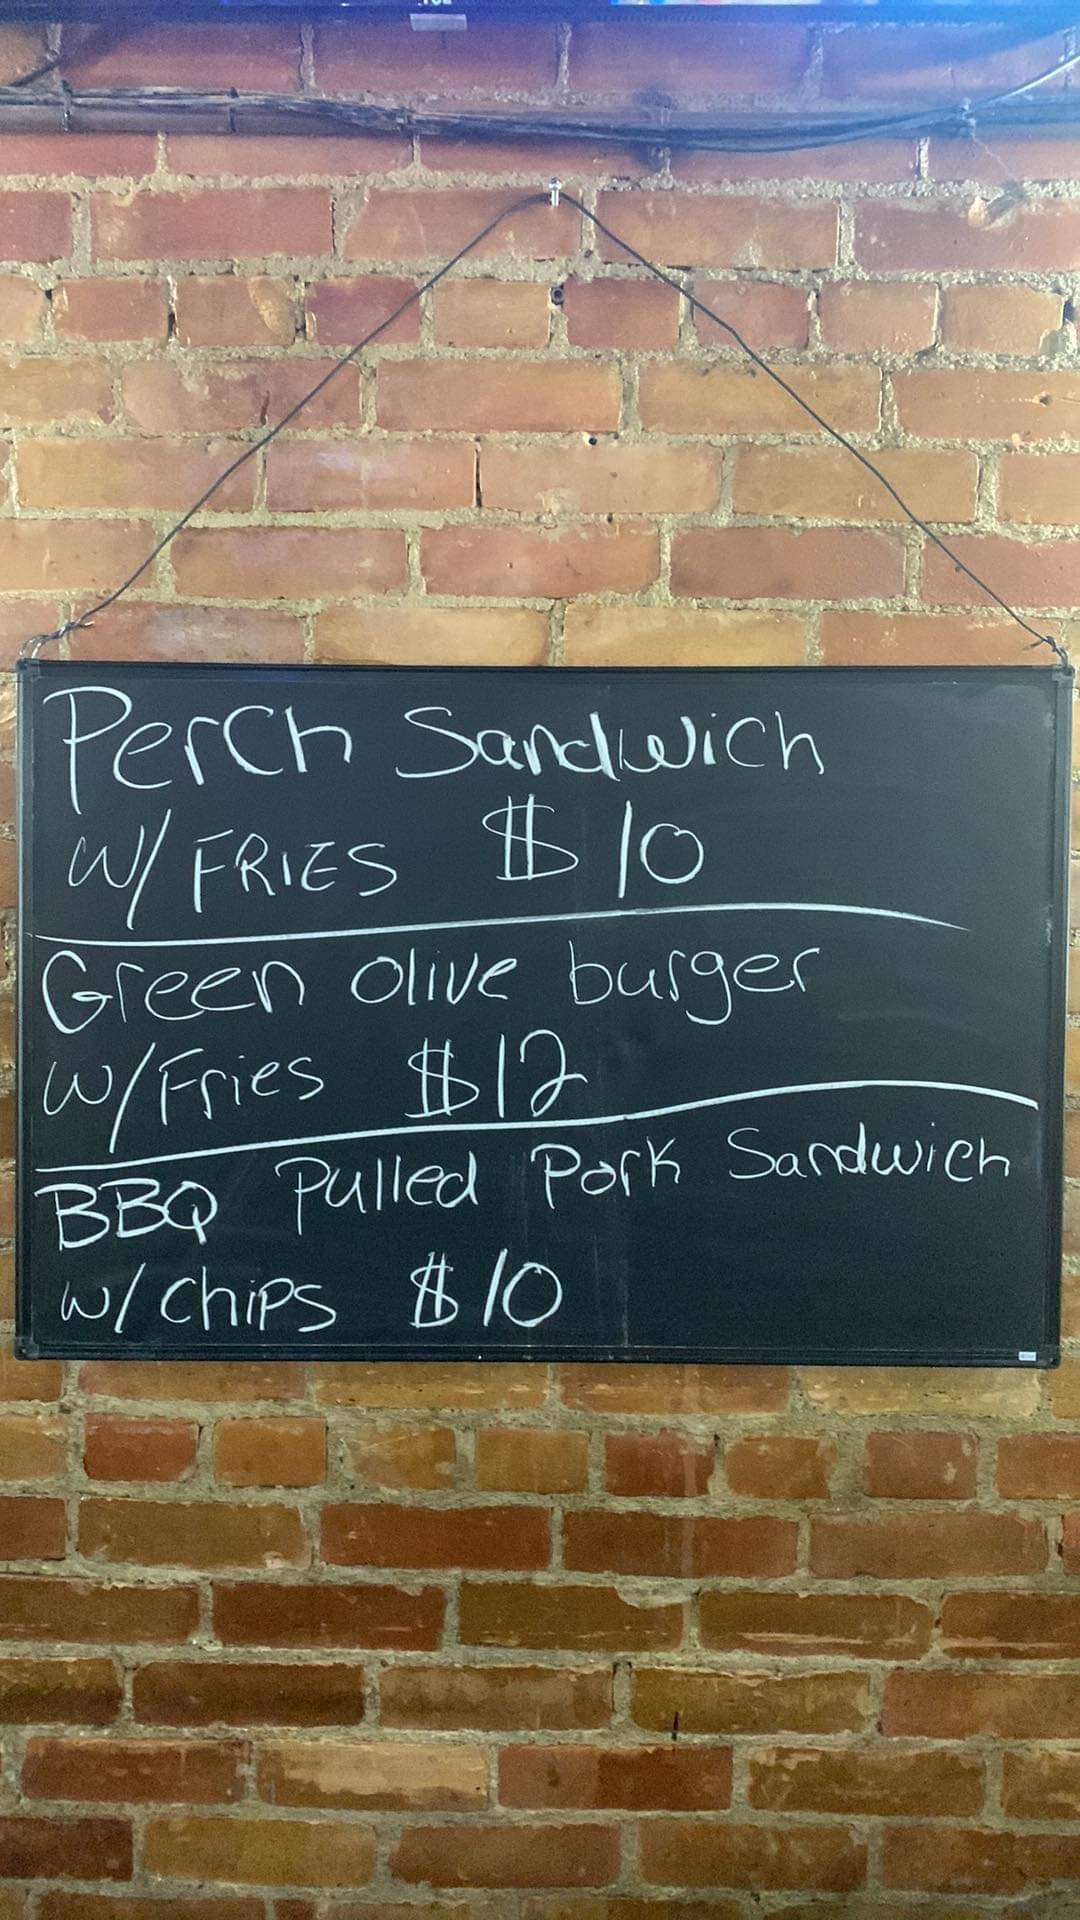 Perch Sandwich
W/ FRIES $10
Green olive burger
w/Fries $12
BBQ Pulled Pork Sandwich
w/ chips $10